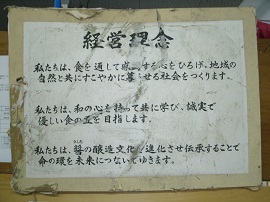 経営理念
私たちは、食を通して感謝する心をひろげ、地域の
自然と共にすこやかに暮らせる社会をつくります。
私たちは、和の心を持って共に学び、誠実で
優しい食の匠を目指します。
私たちは、醤の醸造文化を進化させ伝承することで
命の環を未来につないでゆきます。